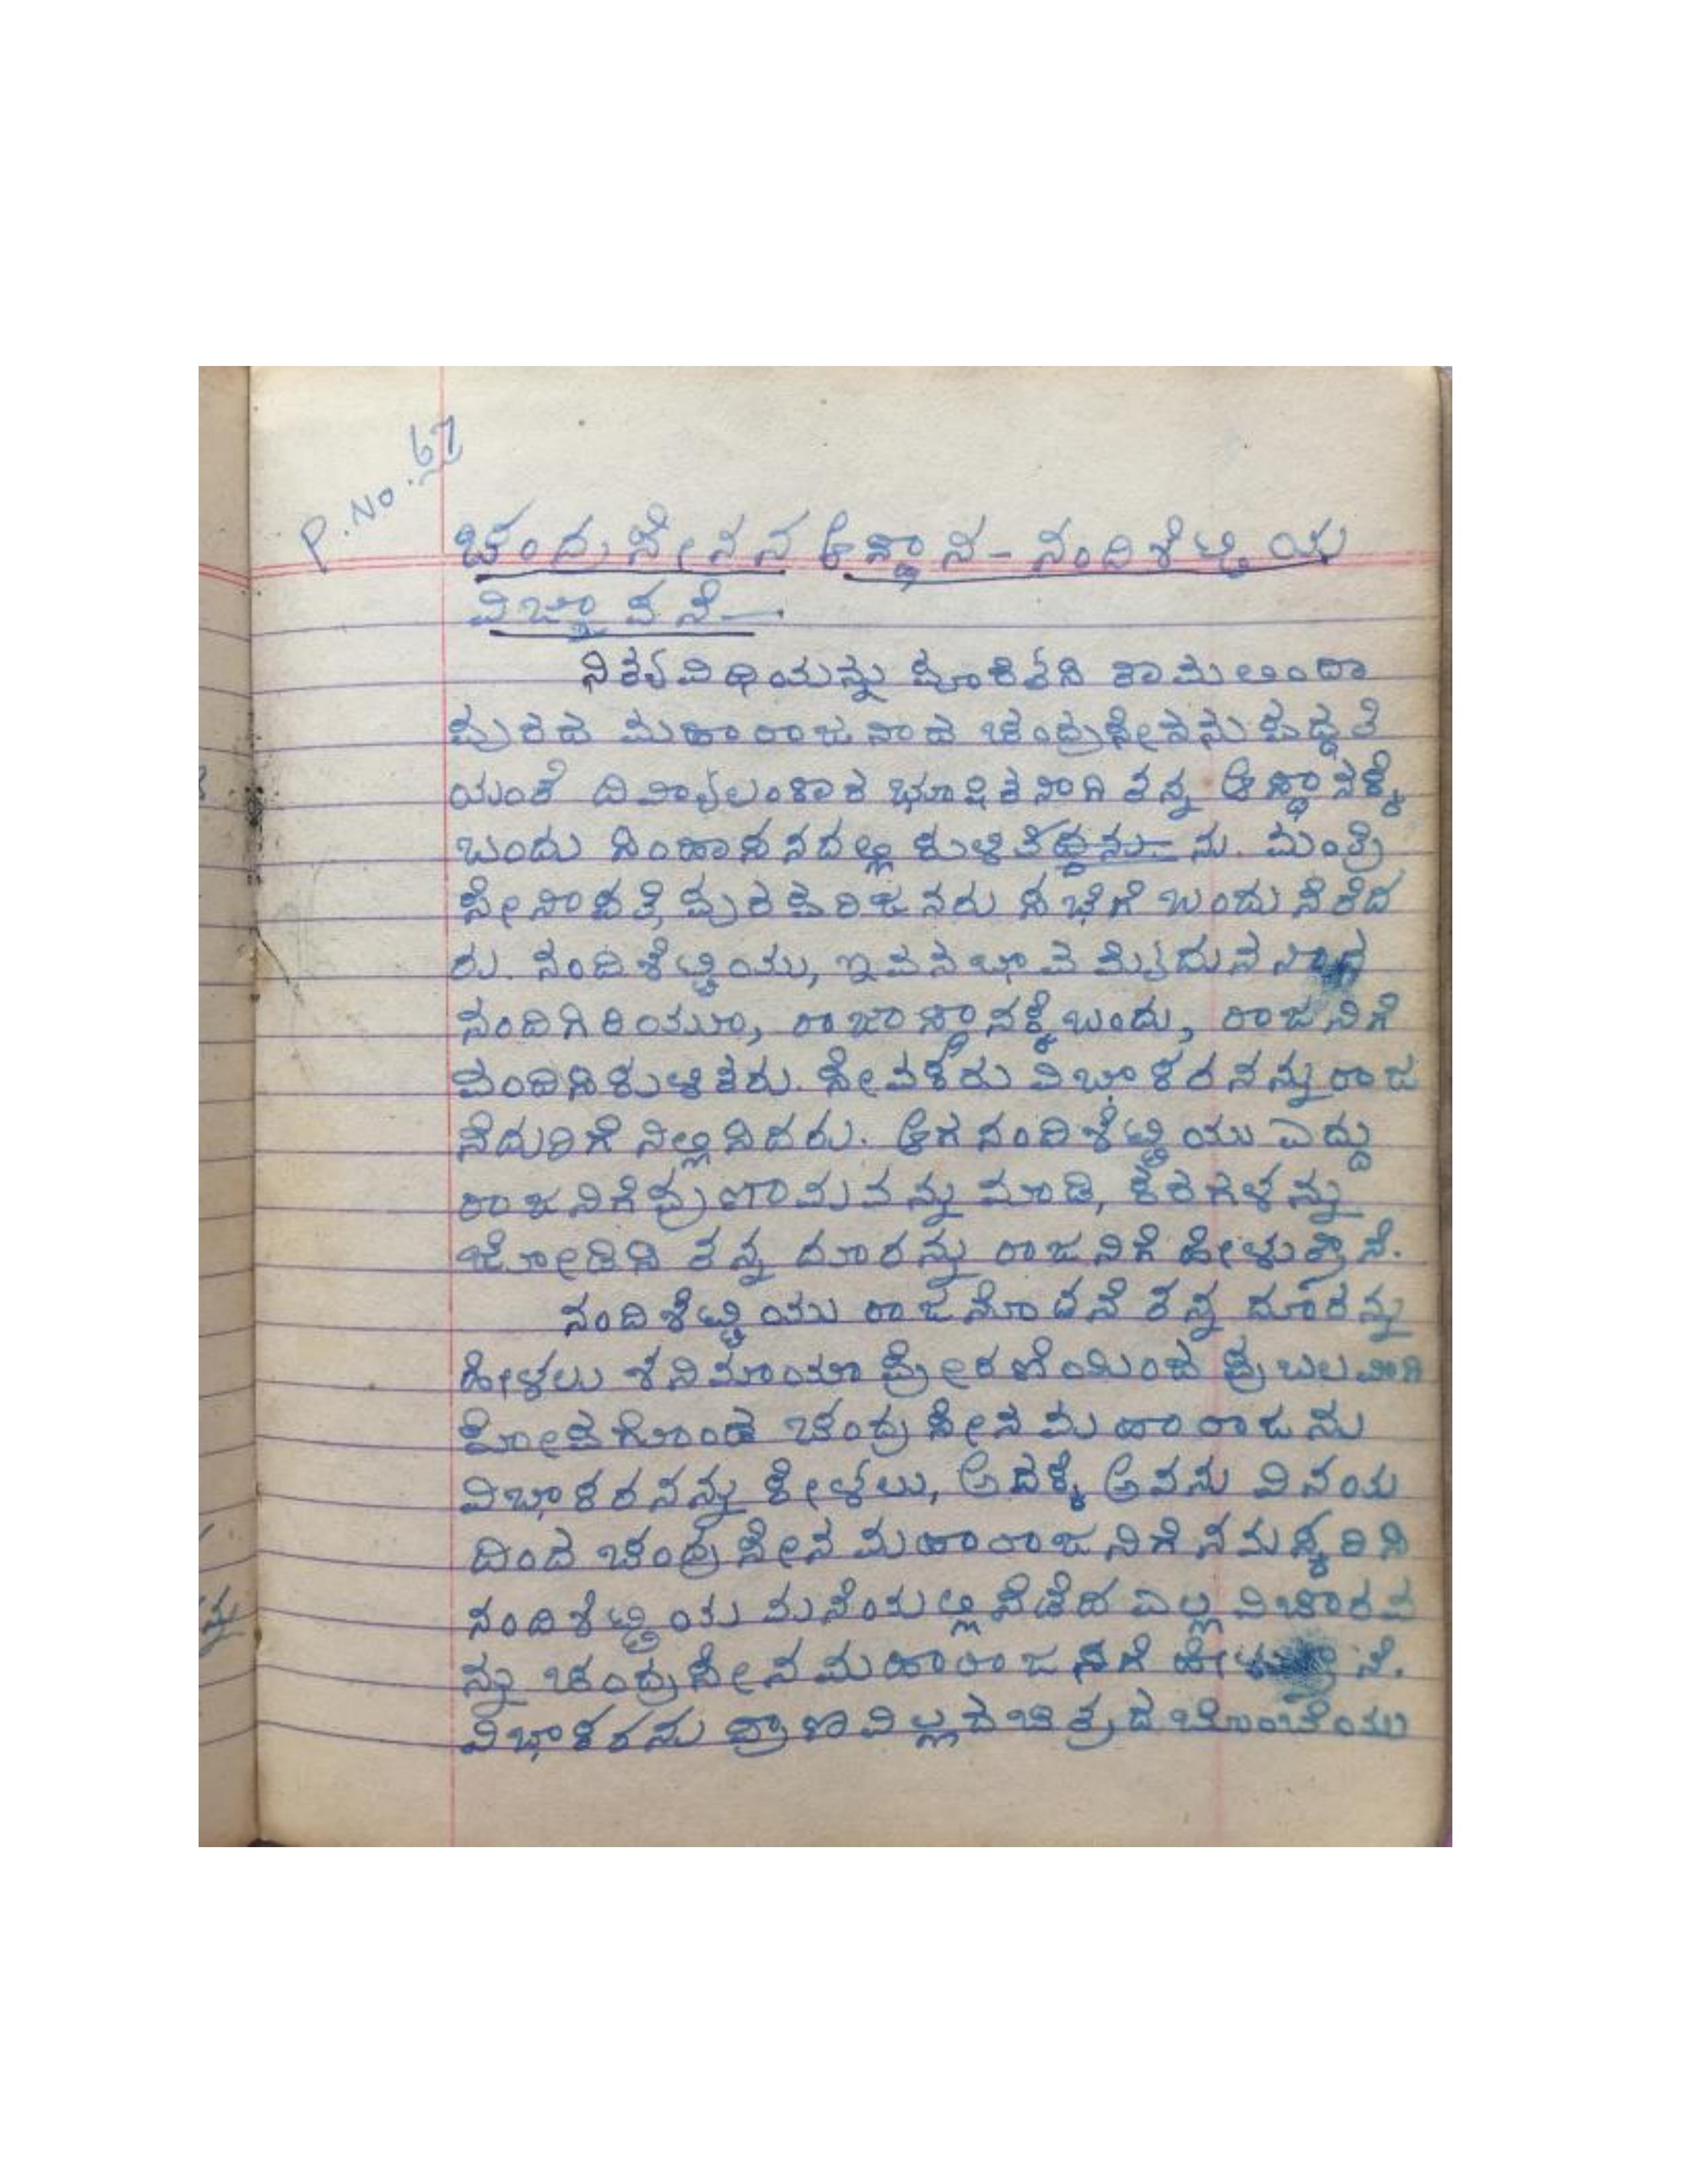 P. No. 67
ಚಂದ್ರಸೇನನ ಆಸ್ಥಾನ - ನಂದಿಶೆಟ್ಟಿಯ
ವಿಜ್ಞಾಪನೆ—.
ನಿತ್ಯವಿಧಿಯನ್ನು ಪೂರೈಸಿ ತಾಮಲಿಂದಾ
ಪುರದ ಮಹಾರಾಜನಾದ ಚಂದ್ರಸೇನನು ಪದ್ಧತಿ
ಯಂತೆ ದಿವ್ಯಾಲಂಕಾರ ಭೂಷಿತನಾಗಿ ತನ್ನ ಆಸ್ಥಾನಕ್ಕೆ
ಬಂದು ಸಿಂಹಾಸನದಲ್ಲಿ ಕುಳಿತಿದ್ದನು. ಮಂತ್ರಿ
ಸೇನಾಪತಿ, ಪುರಪರಿಜನರು ಸಭೆಗೆ ಬಂದು ಸೆರೆದ
ರು. ನಂದಿಶೆಟ್ಟಿಯು, ಇವನ ಭಾವ ಮೈದುನನಾದ
ನಂದಿಗಿರಿಯೂ, ರಾಜಾಸ್ಥಾನಕ್ಕೆ ಬಂದು, ರಾಜನಿಗೆ
ವಂದಿಸಿ ಕುಳಿತರು. ಸೇವಕರು ವಿಭಾಕರನನ್ನು ರಾಜ
ನೆದುರಿಗೆ ನಿಲ್ಲಿಸಿದರು. ಆಗ ನಂದಿಶೆಟ್ಟಿಯು ಎದ್ದು
ರಾಜನಿಗೆ ಪ್ರಣಾಮವನ್ನು ಮಾಡಿ, ಕರಗಳನ್ನು
ಜೋಡಿಸಿ ತನ್ನ ದೂರನ್ನು ರಾಜನಿಗೆ ಹೇಳುತ್ತಾನೆ.
ನಂದಿಶೆಟ್ಟಿಯು ರಾಜನೊಡನೆ ತನ್ನ ದೂರನ್ನು
ಹೇಳಲು ಶನಿಮಾಯಾ ಪ್ರೇರಣೆಯಿಂದ ಪ್ರಬಲವಾಗಿ
ಕೋಪಗೊಂಡ ಚಂದ್ರಸೇನ ಮಹಾರಾಜನು
ವಿಭಾಕರನನ್ನು ಕೇಳಲು, ಅದಕ್ಕೆ ಅವನು ವಿನಯ
ದಿಂದ ಚಂದ್ರಸೇನ ಮಹಾರಾಜನಿಗೆ ನಮಸ್ಕರಿಸಿ
ನಂದಿಶೆಟ್ಟಿಯ ಮನೆಯಲ್ಲಿ ನೆಡೆದ ಎಲ್ಲ ವಿಚಾರವ
ನ್ನು ಚಂದ್ರಸೇನ ಮಹಾರಾಜನಿಗೆ ಹೇಳುತ್ತಾನೆ.
ವಿಭಾಕರನು ಪ್ರಾಣವಿಲ್ಲದ ಚಿತ್ರದ ಬೊಂಬೆಯು